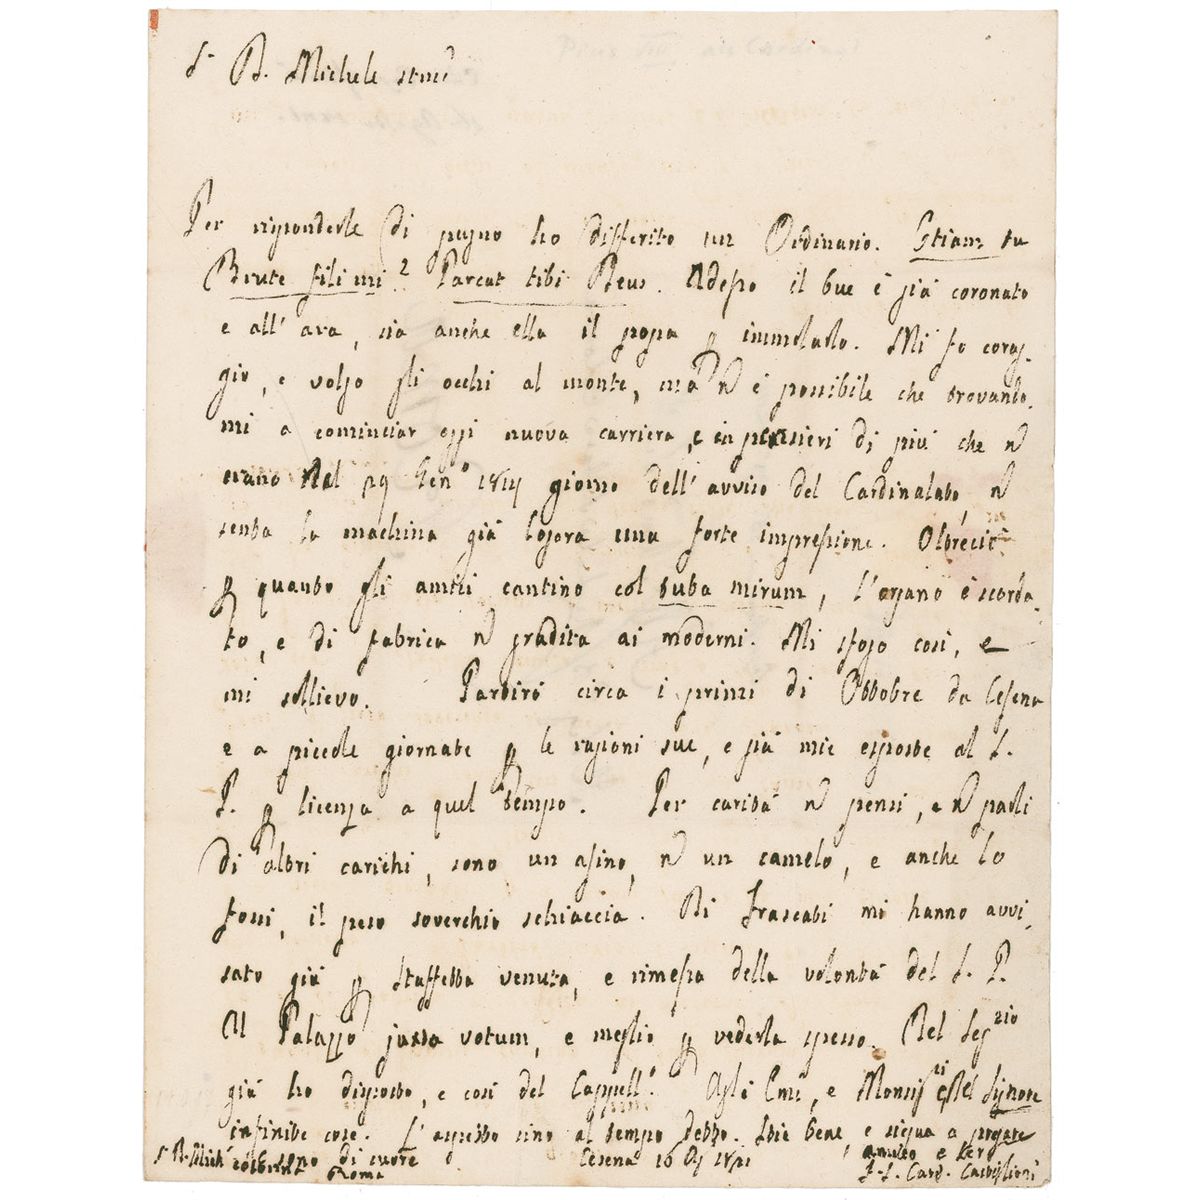 S. B. Michele stmo
Per risponderle di pugno ho differito un Ordinario. Etiam tu
Brute fili mi? Parcat tibi Deus. Adesso il bue è già coronato
e all' ara, sia anche ella il popa p immolarlo. Mi fo corag-
gio, e volgo gli occhi al monte, ma n è possibile che trovando-
mi a cominciar oggi nuova carriera, e in pensieri di più che n
erano nel 29 Gen.o 1814 giorno dell' avviso del Cardinalato, n
senta la machina già logora una forte impressione. Oltreciò
p quanto gli amici cantino col tuba mirum, l'organo è scorda-
to, e di fabrica n gradita ai moderni. Mi sfogo così, e
mi sollievo. Partirò circa i primi di Ottobre da Cesena
e a piccole giornate p le ragioni sue, e già mie esposte al S.
P. p licenza a quel tempo. Per carità n pensi, e n parli
di altri carichi, sono un asino, n un camelo, e anche lo
fossi, il peso soverchio schiaccia. Di Frascati mi hanno avvi-
sato già p staffetta venuta, e rimessa della volontà del S. P.
Il Palazzo juxta votum, e meglio p vederla spesso. Del Segrio
già ho disposto, e così del Cappell.o Agli Emi, e Monsigri del Signore
infinite cose. L'aspetto sino al tempo debto. Stie bene, e siegua a pregare
e sono di cuore Cesena 16 Ag 1821 amico e ser
Roma F. S. Card. Castiglioni